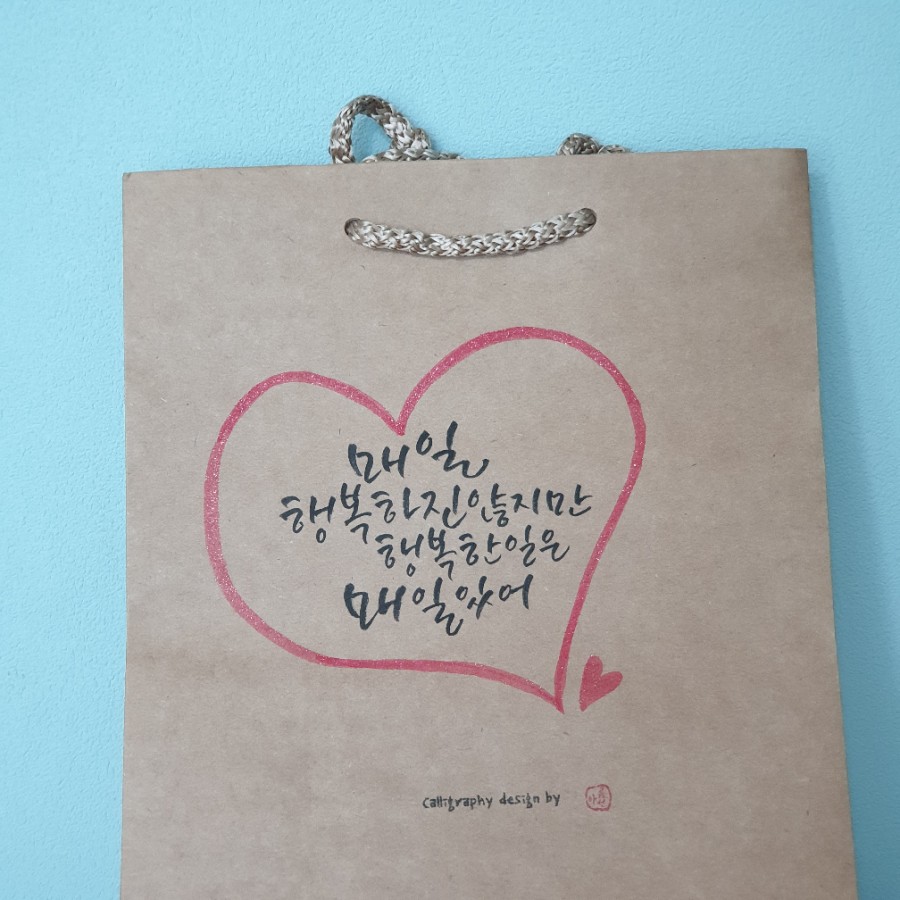 매일
행복하진않지만
행복한일은
매일있어
Calligraphy design by